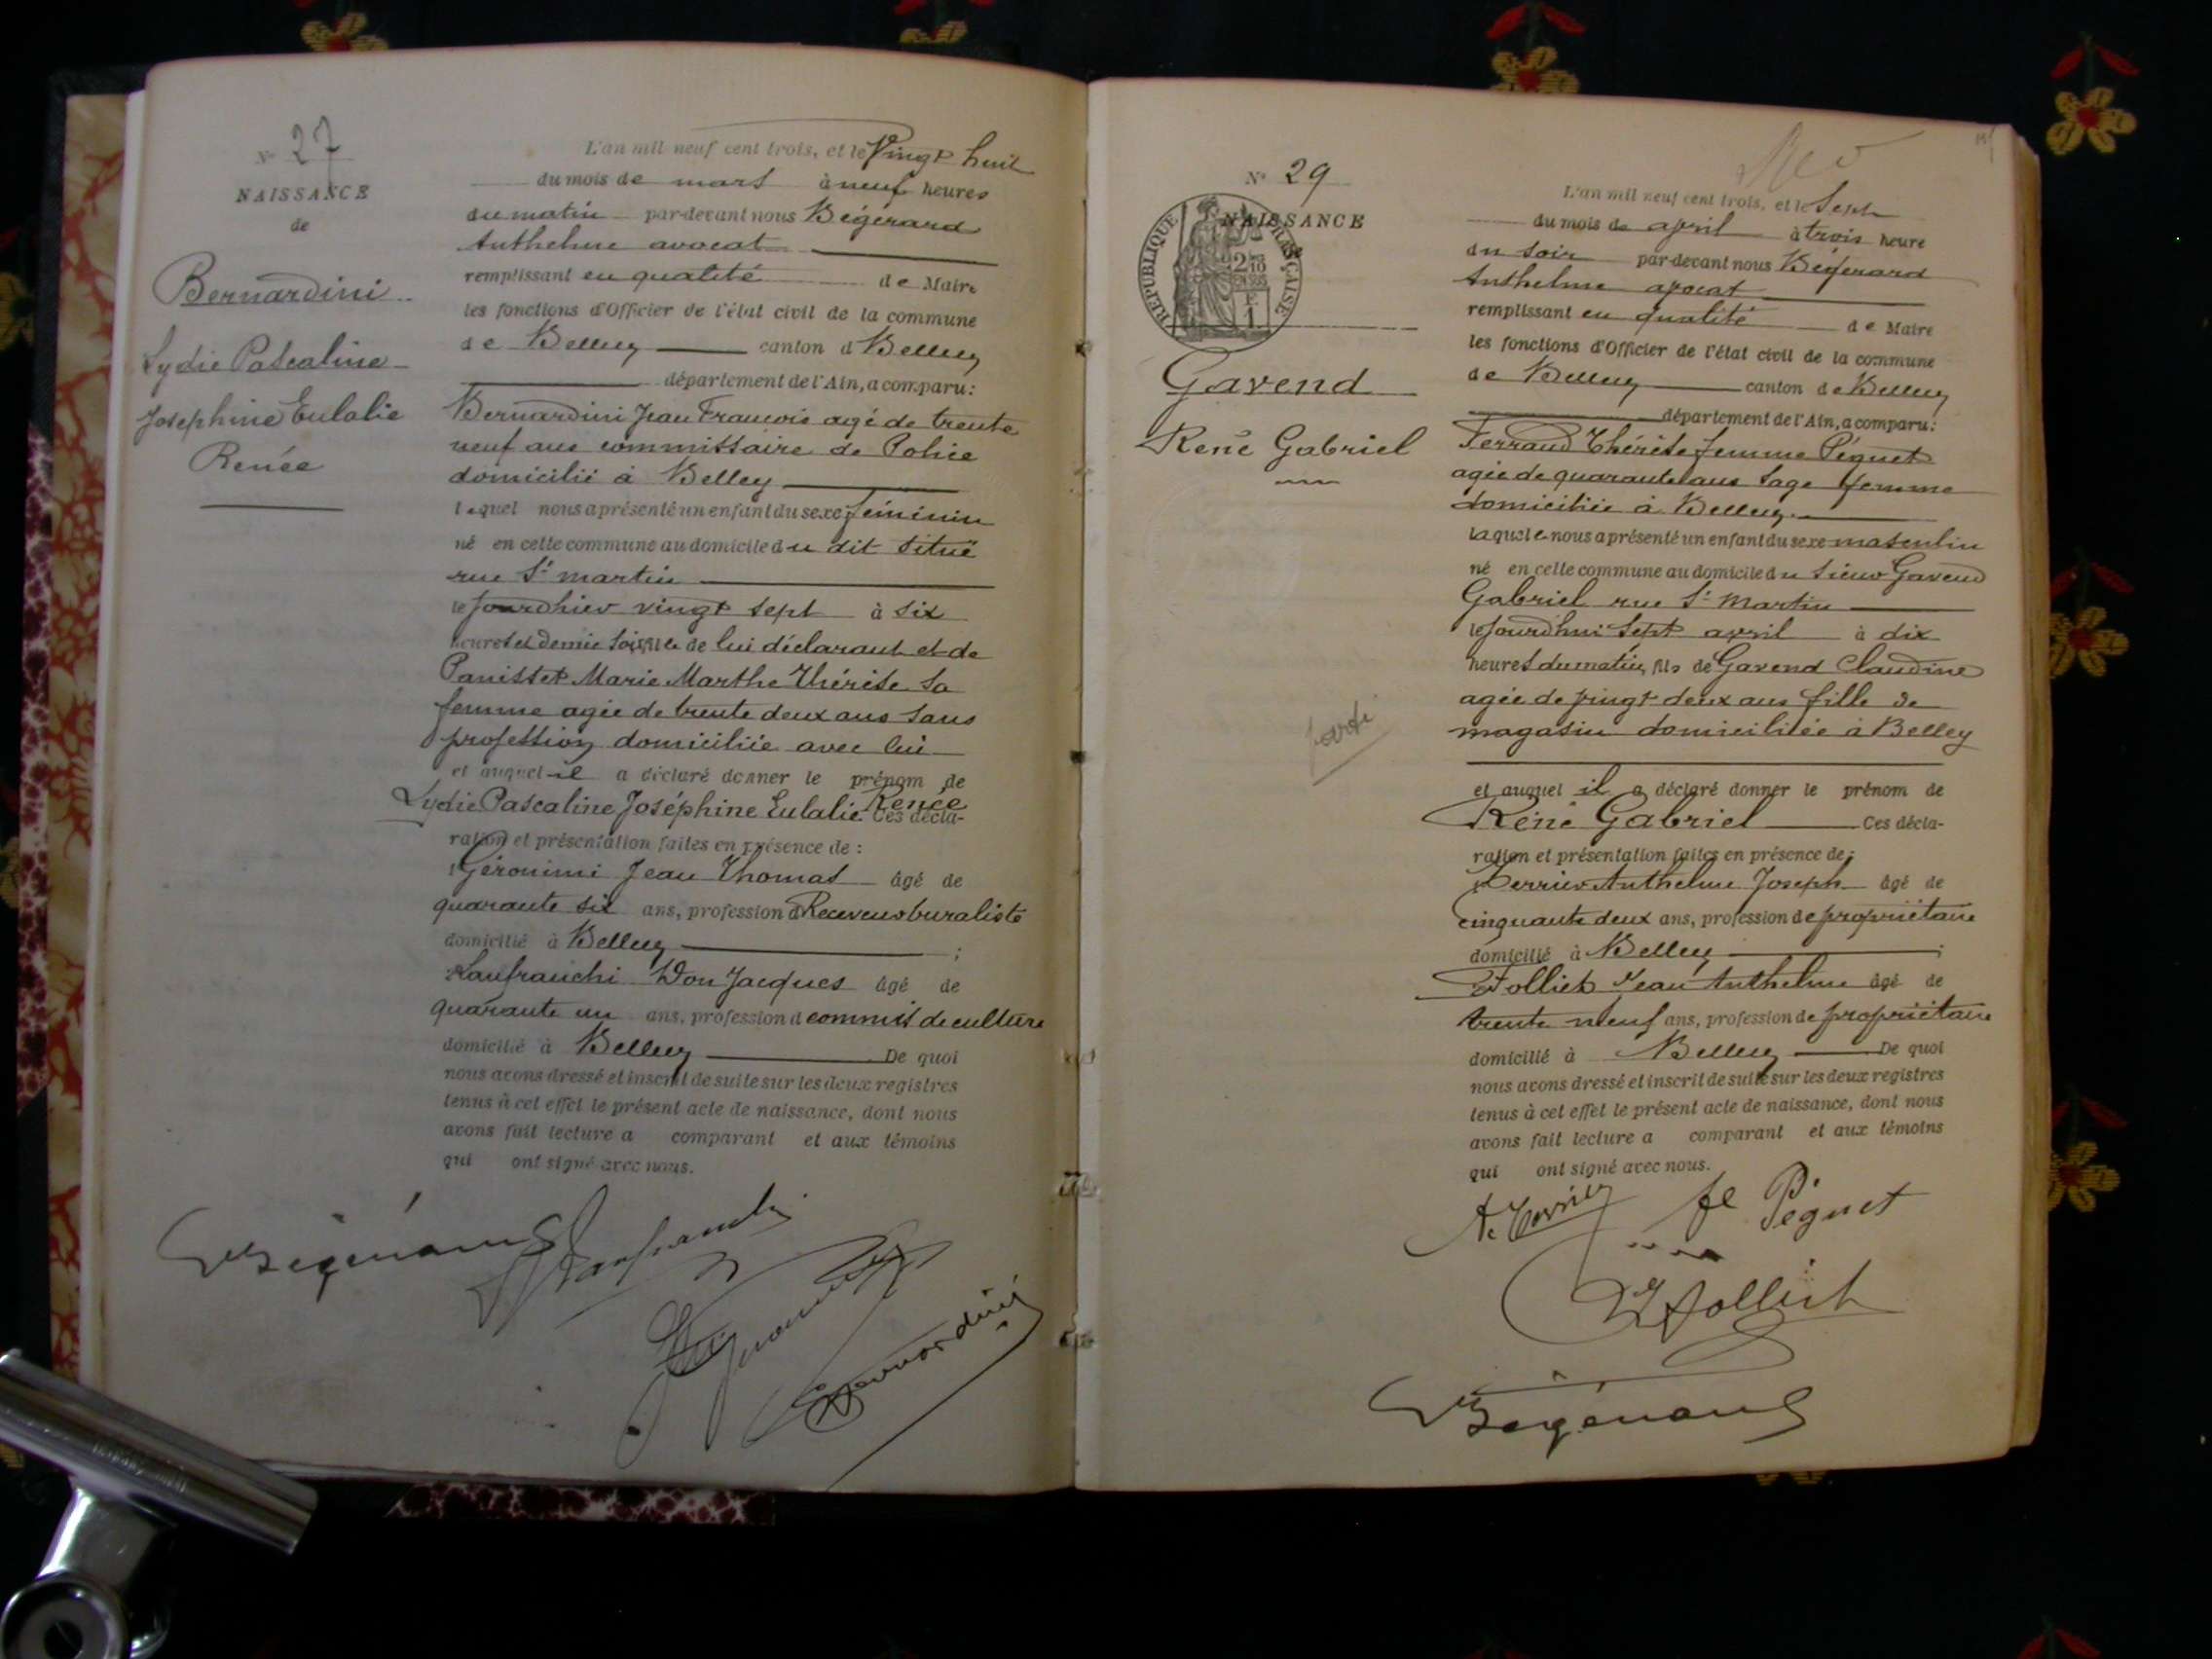 N° 27
NAISSANCE
de
Bernardini
Lydie Pascaline
Joséphine Eulalie
Renée
L'an mil neuf cent trois, et le Vingt huit
du mois de mars à neuf heures
du matin par-devant nous Bégérard
Anthelme avocat
remplissant en qualité de Maire
les fonctions d'Officier de l'état civil de la commune
de Belley canton d Belley
département de l'Ain, a comparu:
Bernardini Jean François agé de trente
neuf ans commissaire de Police
domicilié à Belley
lequel nous a présenté un enfant du sexe féminin
né en cette commune au domicile du dit situé
rue St martin
le jourdhier vingt sept à six
heures et demie soir fille de lui déclarant et de
Panisset Marie Marthe Thérèse sa
femme agée de trente deux ans sans
profession domiciliée avec lui
et auquel il a déclaré donner le prénom de
Lydie Pascaline Joséphine Eulalie Renée Ces décla-
ration et présentation faites en présence de :
1° Géronimi Jean Thomas âgé de
quarante six ans, profession d Receveur buraliste
domicilié à Belley ;
Lanfranchi Don Jacques âgé de
quarante un ans, profession d commis de culture
domicilié à Belley De quoi
nous avons dressé et inscrit de suite sur les deux registres
tenus à cet effet le présent acte de naissance, dont nous
avons fait lecture a comparant et aux témoins
qui ont signé avec nous.
Bégérard Lanfranchi
Bernardini
N° 29
NAISSANCE
RÉPUBLIQUE FRANÇAISE
Gavend
René Gabriel
L'an mil neuf cent trois, et le Sept
du mois de april à trois heure
du soir par-devant nous Bégérard
Anthelme avocat
remplissant en qualité de Maire
les fonctions d'Officier de l'état civil de la commune
de Belley canton de Belley
département de l'Ain, a comparu:
Ferrand Thérèse femme Péguet
agée de quarante ans sage femme
domiciliée à Belley
laquelle nous a présenté un enfant du sexe masculin
né en cette commune au domicile du sieur Gavend
Gabriel rue St Martin
le jourdhui sept april à dix
heures du matin, fils de Gavend Claudine
agée de vingt deux ans fille de
magasin domiciliée à Belley
et auquel il a déclaré donner le prénom de
René Gabriel Ces décla-
ration et présentation faites en présence de;
Perrier Anthelme Joseph âgé de
cinquante deux ans, profession de propriétaire
domicilié à Belley ;
Folliet Jean Anthelme âgé de
trente neuf ans, profession de propriétaire
domicilié à Belley De quoi
nous avons dressé et inscrit de suite sur les deux registres
tenus à cet effet le présent acte de naissance, dont nous
avons fait lecture a comparant et aux témoins
qui ont signé avec nous.
fe Péguet
Folliet
Bégérard